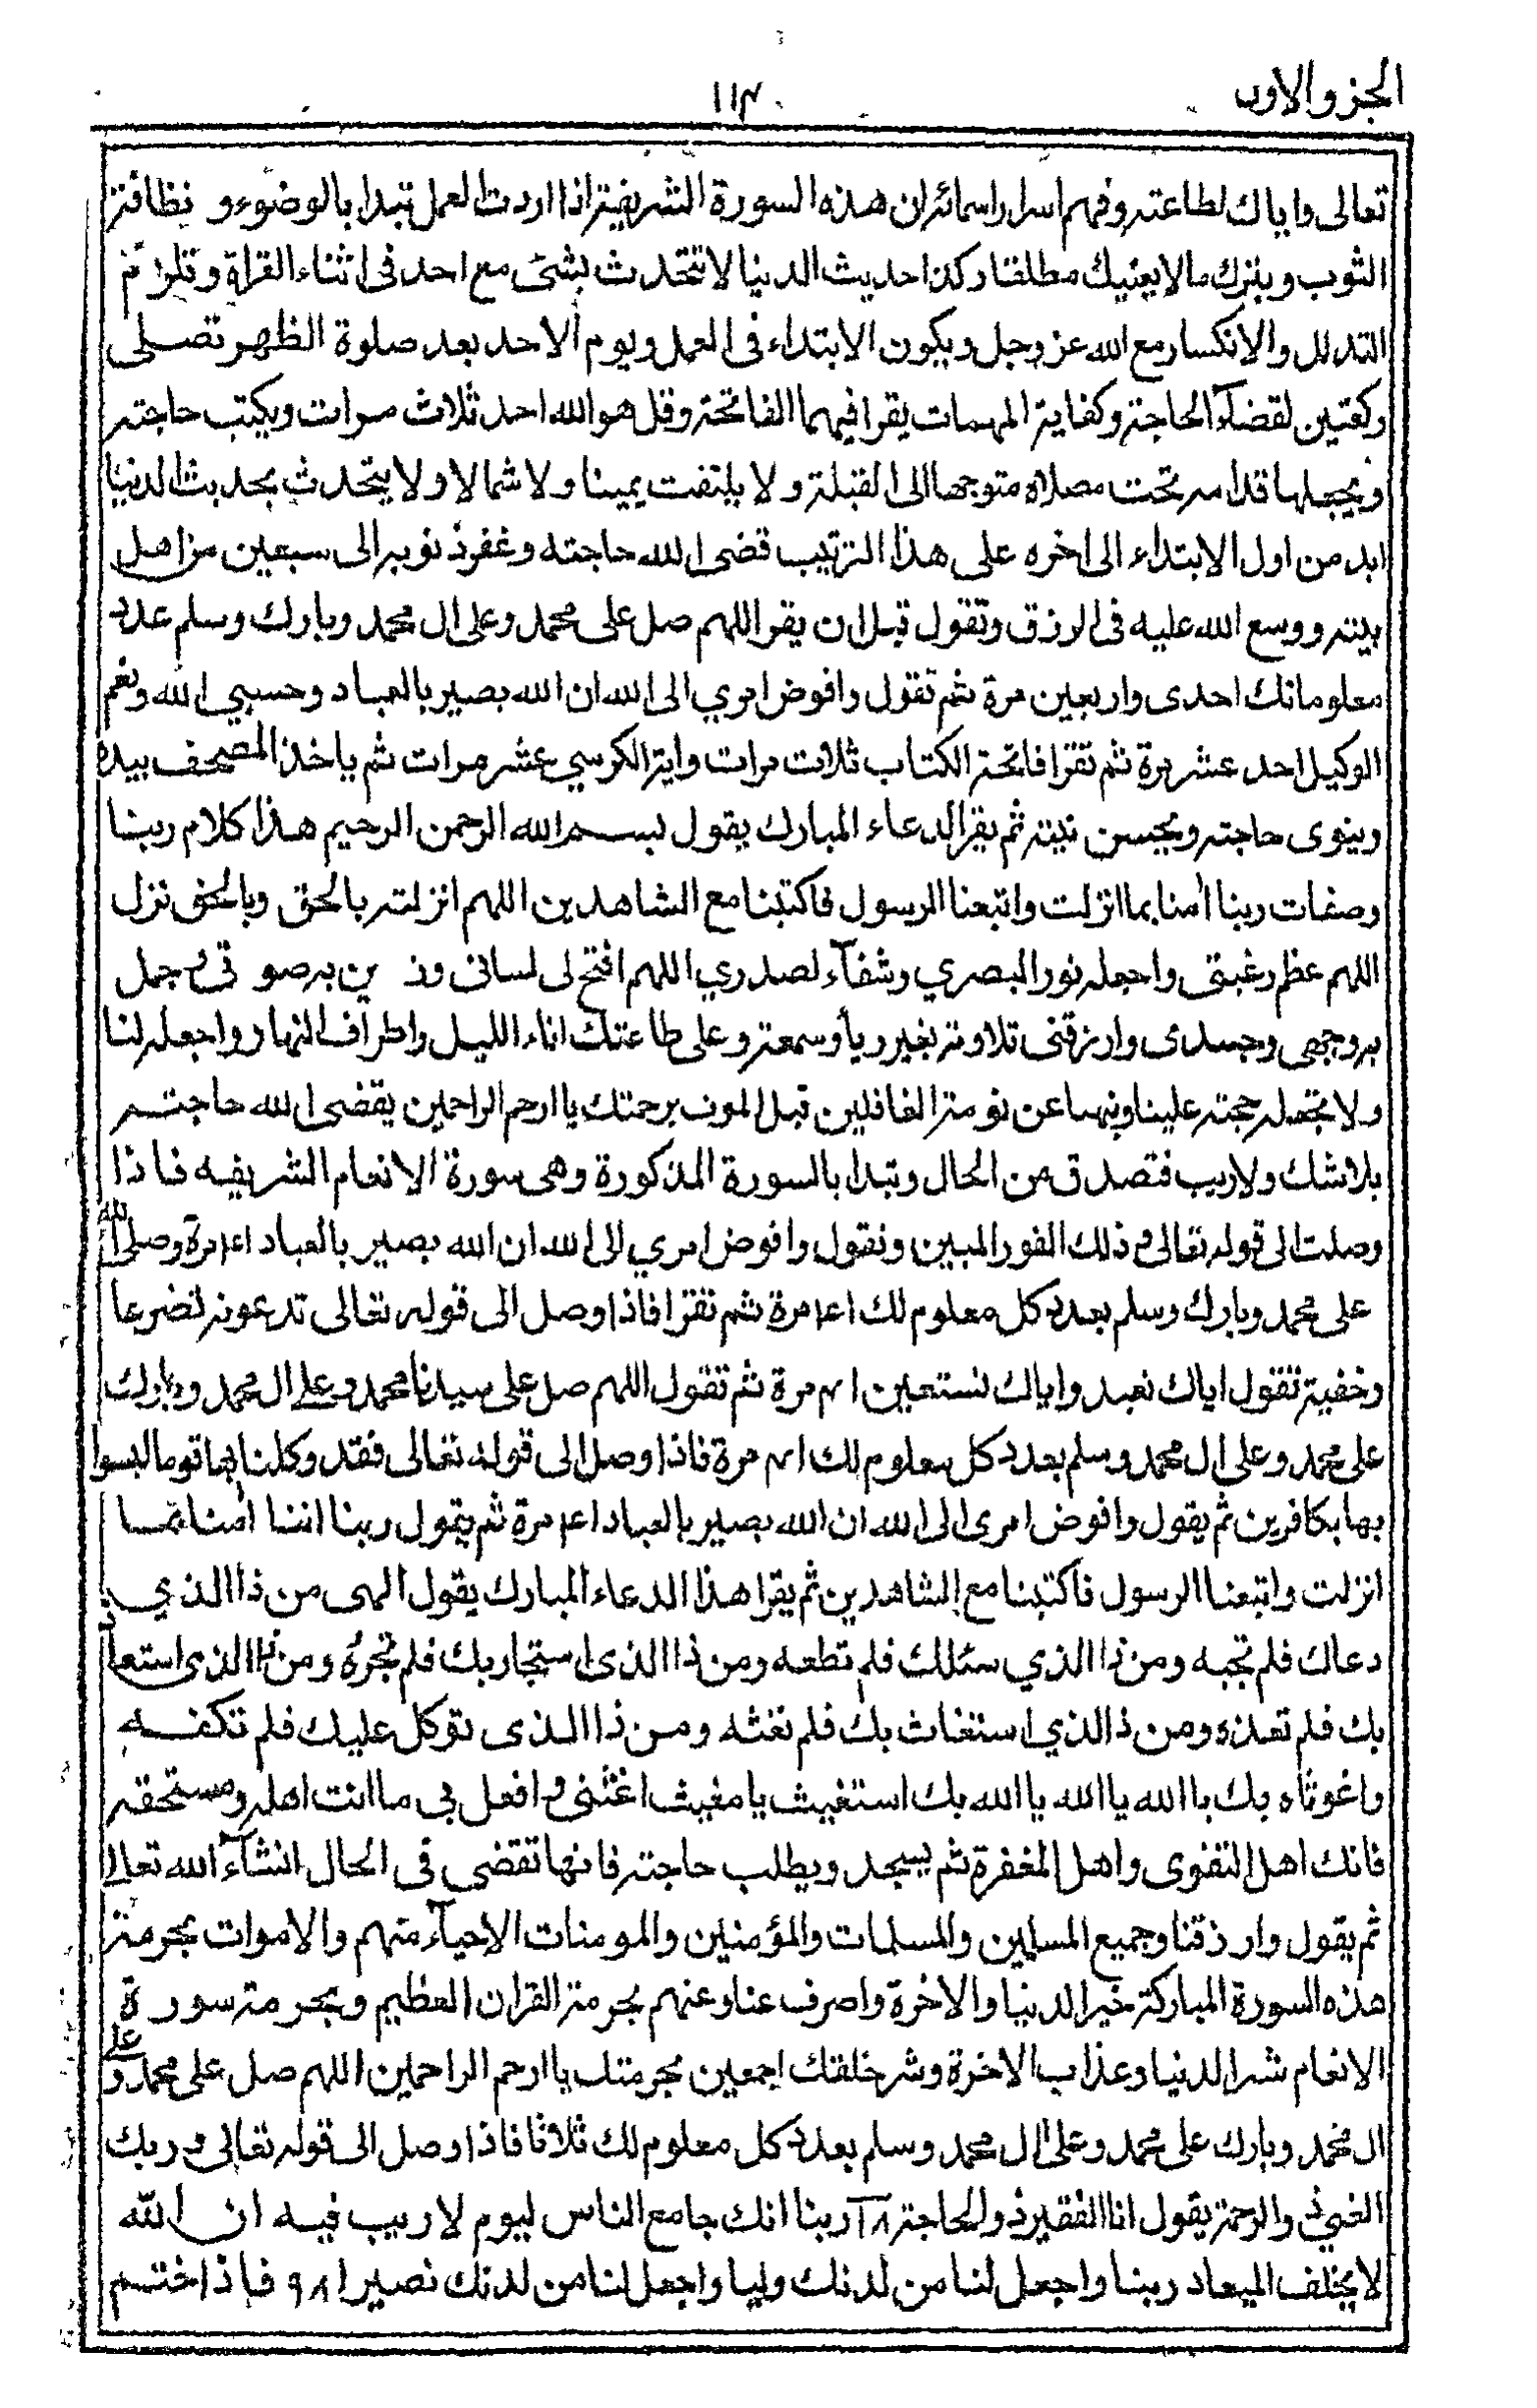 الجزو الاول
١١٣
تعالى واياك لطاعته وفهم اسرار اسمائه ان هذه السورة الشريفة اذا اردت العمل تبدا بالوضوء و نظافة
الثوب ويترك مالا يعنيك مطلقا وكذا حديث الدنيا لا تتحدث بشئ مع احد فى اثناء القراة و تلازم
التدلل والانكسار مع الله عز وجل ويكون الابتداء فى العمل ويوم الاحد بعد صلوة الظهر تصلى
ركعتين لقضآء الحاجة وكفاية المهمات يقرا فيهما الفاتحة وقل هو الله احد ثلاث مرات ويكتب حاجته
ويجعلها قدامه تحت مصلاه متوجها الى القبلة ولا يلتفت يمينا ولا شمالا ولا يتحدث بحديث الدنيا
ابد من اول الابتداء الى اخره على هذا الترتيب قضى الله حاجته وغفر ذنوبه الى سبعين من اهل
بيته ووسع الله عليه فى الرزق وتقول قبل ان يقرا اللهم صل على محمد وعلى ال محمد وبارك وسلم عدد
معلوماتك احدى واربعين مرة ثم تقول وافوض امري الى الله ان الله بصير بالعباد وحسبي الله ونعم
الوكيل احد عشر مرة ثم تقرا فاتحة الكتاب ثلاث مرات واية الكرسي عشر مرات ثم ياخذ المصحف بيده
وينوى حاجته ويحسن نيته ثم يقرا الدعاء المبارك يقول بسم الله الرحمن الرحيم هذا كلام ربنا
وصفات ربنا امنا بما انزلت واتبعنا الرسول فاكتبنا مع الشاهدين اللهم انزلته بالحق وبالحق نزل
اللهم عظم رغبتى واجعله نورا لبصري وشفآء لصدري اللهم افتح لى لسانى وز ين به صو تى وجمل
به وجهى وجسدى وارزقنى تلاوته بغير ريأ وسمعة وعلى طاعتك اناء الليل واطراف النهار واجعله لنا
ولا تجعله حجة علينا ونبهنا عن نومة الغافلين قبل الموت برحمتك يا ارحم الراحمين يقضى الله حاجته
بلا شك ولا ريب فتصدق من الحال وتبدا بالسورة المذكورة وهى سورة الانعام الشريفه فاذا
وصلت الى قوله تعالى وذلك الفوز المبين وتقول وافوض امري الى الله ان الله بصير بالعباد ١٤ مرة وصلى الله
على محمد وبارك وسلم بعدد كل معلوم لك ١٤ مرة ثم تقرا فاذا وصل الى قوله تعالى تدعونه تضرعا
وخفية تقول اياك نعبد واياك نستعين ٤١ مرة ثم تقول اللهم صل على سيدنا محمد وعلى ال محمد وبارك
على محمد وعلى ال محمد وسلم بعدد كل معلوم لك ٤١ مرة فاذا وصل الى قوله تعالى فقد وكلنا بها قوما ليسوا
بها بكافرين ثم يقول وافوض امرى الى الله ان الله بصير بالعباد ١٤ مرة ثم يقول ربنا اننا امنا بما
انزلت واتبعنا الرسول فاكتبنا مع الشاهدين ثم يقرا هذا الدعاء المبارك يقول الهى من ذا الذي
دعاك فلم تجبه ومن ذا الذي سئلك فلم تطعه ومن ذا الذى استجار بك فلم تجره ومن ذا الذى استعاذ
بك فلم تعذه ومن ذا لذي استغاث بك فلم تغثه ومن ذا الذى توكل عليك فلم تكفه
واغوثاه بك يا الله يا الله يا الله بك استغيث يا مغيث اغثنى وافعل بى ما انت اهله ومستحقه
فانك اهل التقوى واهل المغفرة ثم يسجد ويطلب حاجته فانها تقضى فى الحال انشآء الله تعالى
ثم يقول وارزقنا وجميع المسلمين والمسلمات والمؤمنين والمومنات الاحيآء منهم والاموات بحرمة
هذه السورة المباركة خير الدنيا والاخرة واصرف عنا وعنهم بحرمة القران العظيم وبحرمة سورة
الانعام شر الدنيا وعذاب الاخرة وشر خلقك اجمعين بحرمتك يا ارحم الراحمين اللهم صل على محمد وعلى
ال محمد وبارك على محمد وعلى ال محمد وسلم بعدد كل معلوم لك ثلاثا فاذا وصل الى قوله تعالى وربك
الغنى ذو الرحمة يقول انا الفقير ذو الحاجة ١٨ ربنا انك جامع الناس ليوم لا ريب فيه ان الله
لا يخلف الميعاد ربنا واجعل لنا من لدنك وليا واجعل لنا من لدنك نصيرا ٩٨ فاذا ختم